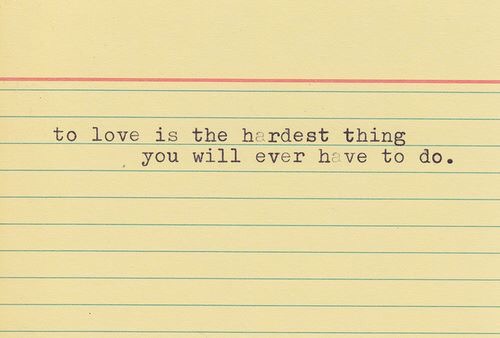 to love is the hardest thing
you will ever have to do.